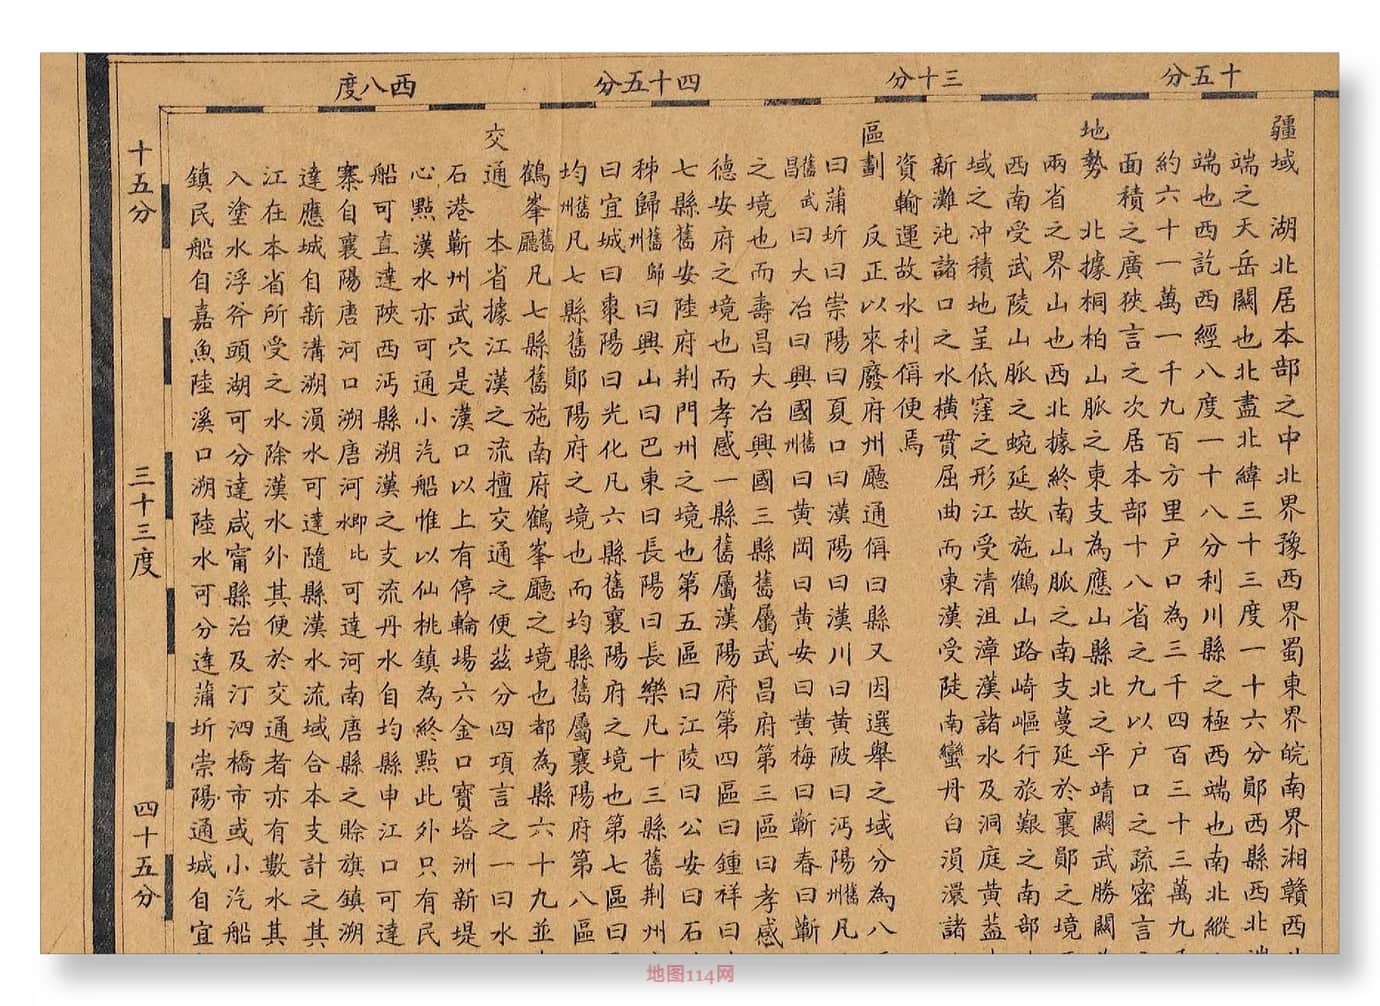 十五分
三十分
四十五分
西八度
疆域 湖北居本部之中北界豫西界蜀東界皖南界湘贛西
端之天岳關也北盡北緯三十三度一十六分鄖西縣西北
端也西訖西經八度一十八分利川縣之極西端也南北縱
約六十一萬一千九百方里户口為三千四百三十三萬九
面積之廣狹言之次居本部十八省之九以户口之疏密言
地勢 北據桐柏山脈之東支為應山縣北之平靖關武勝關
兩省之界山也西北據終南山脈之南支蔓延於襄鄖之境
西南受武陵山脈之蜿延故施鶴山路崎嶇行旅艱之南部
域之冲積地呈低窪之形江受清沮漳漢諸水及洞庭黃蓋
新灘沌諸口之水橫貫屈曲而東漢受陡南蠻丹白溳澴諸
資輸運故水利偁便焉
區劃 反正以來廢府州廳通偁曰縣又因選舉之域分為八
曰蒲圻曰崇陽曰夏口曰漢陽曰漢川曰黃陂曰沔陽舊州凡
舊武昌曰大冶曰興國舊州曰黃岡曰黃安曰黃梅曰蘄春曰蘄
之境也而壽昌大冶興國三縣舊屬武昌府第三區曰孝感
德安府之境也而孝感一縣舊屬漢陽府第四區曰鍾祥曰
七縣舊安陸府荆門州之境也第五區曰江陵曰公安曰石
秭歸舊歸州曰興山曰巴東曰長陽曰長樂凡十三縣舊荆州
曰宜城曰棗陽曰光化凡六縣舊襄陽府之境也第七區曰
均舊州凡七縣舊鄖陽府之境也而均縣舊屬襄陽府第八區
鶴峯舊廳凡七縣舊施南府鶴峯廳之境也都為縣六十九並
交通 本省據江漢之流擅交通之便茲分四項言之一曰水
石港蘄州武穴是漢口以上有停輪場六金口寶塔洲新堤
心點漢水亦可通小汽船惟以仙桃鎮為終點此外只有民
船可直達陝西沔縣溯漢之支流丹水自均縣申江口可達
寨自襄陽唐河口溯唐河即比水可達河南唐縣之賒旗鎮溯
達應城自新溝溯溳水可達隨縣漢水流域合本支計之其
江在本省所受之水除漢水外其便於交通者亦有數水其
入塗水浮斧頭湖可分達咸甯縣治及汀泗橋市或小汽船
鎮民船自嘉魚陸溪口溯陸水可分達蒲圻崇陽通城自宜
十五分
三十三度
四十五分
地图114网